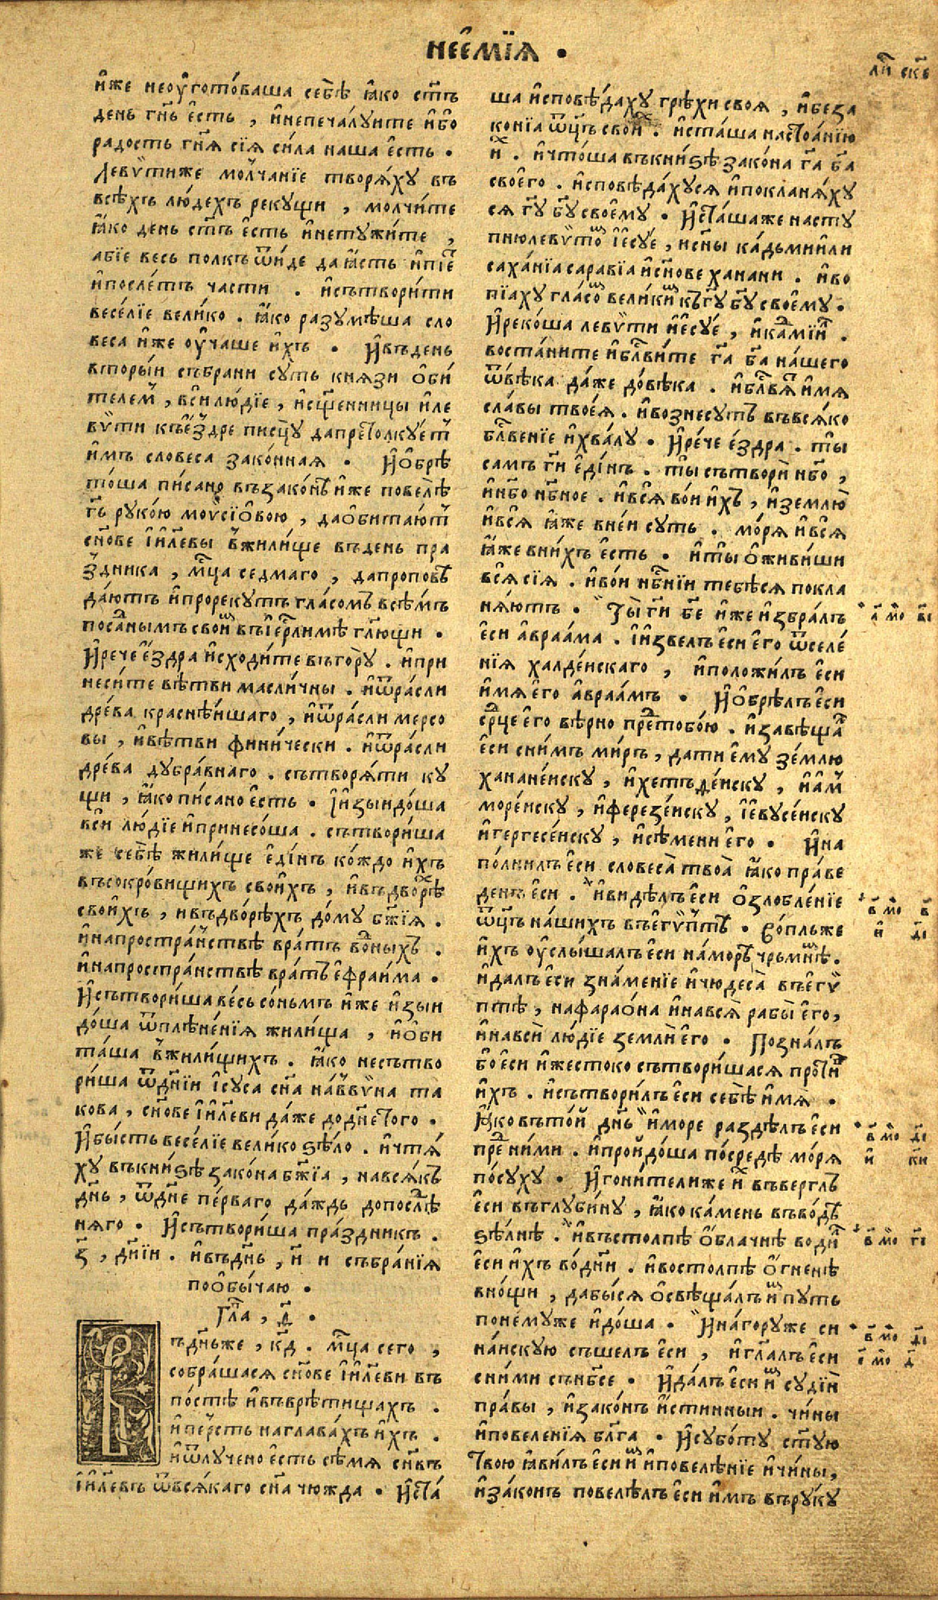 нее҆мїѧ •
и҆же неоу҆гото́ваша себѣ̀ ꙗ҆́ко ст҃ъ
день гн҃ь е҆́сть , и҆непечалуите и҆бо
радость гнѧ҃ сїѧ̀ си́ла наша е҆́сть •
Левѵ҆тиже молча́нїе творѧ́ху въ
всѣ́хъ лю́дехъ рекущи , молчи́те
ꙗ҆́ко день ст҃ъ е҆́сть и҆нетужи́те ,
абїе весь полкъ ѿи́де да ꙗ҆́сть и҆пїе҆
и҆послетъ части . и҆сътвори́ти
весе́лїе вели́ко . ꙗ҆́ко разумѣ́ша сло
веса и҆же оу҆чаше и҆́хъ • И҆въдень
вторы́и събрани суть князи о҆би́
телем , вси лю́дїе , и҆сщ҃е́нницы и҆ле
вѵ́ти къе҆́здре писцу̀ дапрет҃олкуе҆т
и҆́мъ словеса зако́нная • И҆о҆брѣ́
то́ша пи́сано възако́нѣ и҆́же повелѣ̀
гь҃ руко́ю моѵ҆сїо́вою , дао҆бита́ют
сн҃ове і҆и҃леви вжили́ще въдень пра
здника , мц҃а седмаго , дапроповѣ
да́ютъ и҆прорекутъ гла́сомъ всѣ́мъ
посл҃анымъ свои въі҆ер҃лимѣ гл҃ющи •
И҆рече е҆́здра и҆сходи́те въго́ру . и҆при
неси́те вѣ́тви масли́чны . и҆ѿра́сли
дре́ва краснѣ́ишаго , и҆ѿра́сли мерсо
вы , и҆вѣ́тви фини́чески . и҆ѿра́сли
дре́ва дубра́внаго . сътворя́ти ку
щи , ꙗ҆́ко пи́сано е҆́сть • І҆и҆зыидо́ша
вси лю́дїе и҆принесо́ша . сътвори́ша
же себѣ̀ жили́ще е҆ди́нъ ко́ждо и҆́хъ
въсокро́вищихъ свои́хъ , и҆въдво́рѣ
свои́хъ , и҆въдво́рѣхъ до́му бж҃їя .
и҆напростра́нствѣ вра́тъ во́ныхъ .
и҆напространствѣ вра́тъ е҆фраи́ма •
И҆сътвори́ша ве́сь со́ньмъ и҆́же и҆зыи
до́ша ѿплѣне́нїя жили́ща , и҆о҆би
та́ша вжили́щихъ . ꙗ҆́ко несътво
ри́ша ѿдн҃їи і҆суса сн҃а на́ввѵ́на та
кова , сн҃ове і҆и҃леви да́же додн҃е то́го •
И҆бы́сть весе́лїе вели́ко ѕѣло . и҆чтя́
ху въкни́ѕѣ зако́на бж҃їа , нався́къ
дн҃ь , ѿдн҃е пе́рваго да́ждь допослѣ́
няго • И҆сътвори́ша пра́здникъ .
з҃ , дн҃їи . и҆въдн҃ь , и҃ и събра́нїя
поо҆бы́чаю •
Гл҃а , д҃ •
ъдн҃ьже , к҃д . мц҃а сего ,
собра́шася сн҃ове і҆и҃леви въ
по́стѣ и҆въврѣ́тищахъ .
и҆пе́рсть наглава́хъ и҆́хъ .
и҆ѿлучено е҆́сть сѣ́мя сн҃въ
і҆и҃левъ ѿвся́каго сн҃а чю́жда • И҆ста́
ша и҆сповѣ́даху грѣхи своя , и҆беза
ко́нїа ѿц҃ъ свои . и҆ста́ша настоя́нїю
и҆х . и҆что́ша въкни́ѕѣ зако́на гa҃ ба҃
своего̀ . и҆сповѣ́дахуся и҆покланя́ху
ся гу҃ бу҃ своему • И҆ста́шаже насту
пнюлевѵ҆то і҆есуе , исн҃ы ка́дьмиили
саха́нїа сарабїа и҆сн҃ове ханани . и҆во
пїаху гла́со вели́ки къгу҃ бу҃ своему̀.
И҆реко́ша левѵ҆ти и҆е҆су́е , и҆кадмїил .
воста́ните и҆блг҃ви́те га҃ ба҃ на́шего
ѿвѣ́ка да́же до́вѣ́ка . и҆блв҃я и҆́мя
сла́вы твоея . и҆вознесутъ въвся́ко
блг҃ве́нїе и҆хва́лу • И҆ре́че е́здра . ты̀
самъ ги҃ е҆ди́нъ . ты̀ сътвори̂ нб҃о ,
и҆нб҃о нб҃ное . и҆вся̀ во́и и҆́хъ , и҆землю̀
и҆вся̀ ꙗ҆́же вне́и суть . мо́ря и҆вся̀
ꙗ҆́же вни́хъ е҆́сть • и҆ты̀ о҆живи́ши
вся̀ сїя̀ . и҆во́и нб҃нїи тебѣ́ся покла
ня́ютъ • Ты̀ ги҃ бе҃ и҆же и҆збра́лъ
е҆си авраа́ма . І҆и҆звелъ е҆си его̀ ѿселе́
нїя халде́искаго , и҆положи́лъ е҆си
и҆мя е҆го̀ авраа́мъ • И҆о҆брѣ́лъ е҆си
ср҃це е҆го̀ вѣ́рно предтобо́ю . и҆завѣща
е҆си сни́мъ ми́ръ , дати е҆му зе́млю
ханане́иску , и҆хетъде́иску , и҆ам
море́иску , и҆ферезе́иску , і҆евусе́иску
и҆гергесе́иску , и҆сѣ́мени е҆го̀ • И҆на
по́лнилъ е҆си словеса̀ твоа̀ ꙗ҆́ко пра́ве
денъ е҆си . И҆ви́дѣлъ е҆си о҆злобле́нїе
ѿц҃ъ на́шихъ въе҆гѵ́птѣ • Во́пльже
и҆́хъ оу҆слы́шалъ е҆си на́морѣ чрьмнѣ́мь.
и҆да́лъ е҆си зна́менїе и҆чюдеса̀ въе҆гѵ̀
птѣ , нафарао́на и҆нався̀ рабы̀ е҆го̀,
и҆нався̀ лю́дїе земля̀ е҆го̀ • Позна́лъ
бо е҆си ꙗ҆́ко же́стоко сътвори́шася проти
и҆́хъ . и҆сътвори́лъ е҆си себѣ̀ и҆́мя •
Ꙗ҆́ковъто́и дн҃ь и҆мо́ре раздѣлъ е҆си
пред ни́ми . и҆проидо́ша посредѣ̀ мо́ря
по́суху • И҆гони́телиже и҆х въве́рглъ
е҆си въглуби́ну , ꙗ҆́ко ка́мень въво́дѣ
ѕѣ́лнѣ . и҆въстолпѣ̀ о҆́блачнѣ води
е҆си и҆́хъ во́дни . и҆востолпѣ̀ о҆́гненѣ
вно́щи , дабы́ся о҆свѣща́лъ и҆м пу́ть
поне́муже и҆до́ша • И҆наго́руже си
на́искую съше́лъ е҆си , и҆гл҃а́лъ е҆си
сни́ми сънб҃се • И҆да́лъ е҆си и҆м суди́и
пра́вы , и҆зако́нъ и҆́стинныи . чи́ны
и҆повеле́нїя бл҃га • И҆субо́ту ст҃ую
твою̀ ꙗ҆ви́лъ е҆си и҆м и҆повелѣ́нїе и҆чи́ны,
и҆зако́нъ повелѣ́лъ е҆си и҆́мъ въру́ку